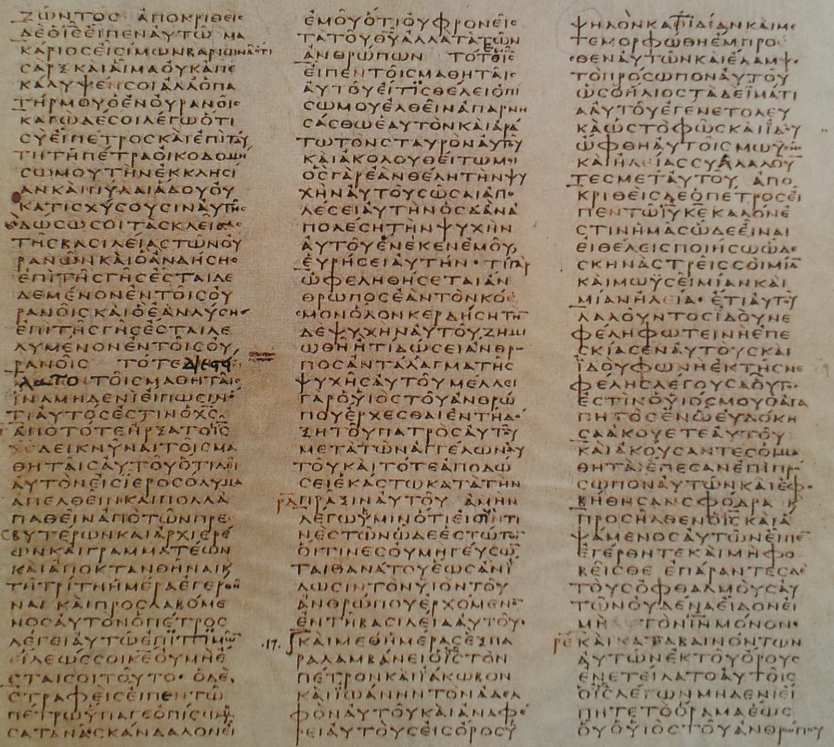 ΖΩΝΤΟϹ ΑΠΟΚΡΙΘΕΙϹ
ΔΕΟΙϹΕΙΠΕΝΑΥΤΩ ΜΑ
ΚΑΡΙΟϹΕΙϹΙΜΩΝΒΑΡΙΩΝΑΟΤΙ
ϹΑΡΞΚΑΙΑΙΜΑΟΥΚΑΠΕ
ΚΑΛΥΨΕΝϹΟΙΑΛΛΟΠΑ
ΤΗΡΜΟΥΟΕΝΟΥΡΑΝΟΙϹ
ΚΑΓΩΔΕϹΟΙΛΕΓΩΟΤΙ
ϹΥΕΙΠΕΤΡΟϹΚΑΙΕΠΙΤΑΥ
ΤΗΤΗΠΕΤΡΑΟΙΚΟΔΟΜΗ
ϹΩΜΟΥΤΗΝΕΚΚΛΗϹΙ
ΑΝΚΑΙΠΥΛΑΙΑΔΟΥΟΥ
ΚΑΤΙϹΧΥϹΟΥϹΙΝΑΥΤΗϹ
ΔΩϹΩϹΟΙΤΑϹΚΛΕΙΔΑϹ
ΤΗϹΒΑϹΙΛΕΙΑϹΤΩΝΟΥ
ΡΑΝΩΝΚΑΙΟΑΝΔΗϹΗϹ
ΕΠΙΤΗϹΓΗϹΕϹΤΑΙΔΕ
ΔΕΜΕΝΟΝΕΝΤΟΙϹΟΥ
ΡΑΝΟΙϹΚΑΙΟΕΑΝΛΥϹΗϹ
ΕΠΙΤΗϹΓΗϹΕϹΤΑΙΛΕ
ΛΥΜΕΝΟΝΕΝΤΟΙϹΟΥ
ΡΑΝΟΙϹ ΤΟΤΕΔΙΕϹΤΕΙ
ΛΑΤΟΤΟΙϹΜΑΘΗΤΑΙϹ
ΙΝΑΜΗΔΕΝΙΕΙΠΩϹΙΝΟ
ΤΙΑΥΤΟϹΕϹΤΙΝΟΧϹ
ΑΠΟΤΟΤΕΗΡΞΑΤΟΙϹ
ΧϹΔΕΙΚΝΥΝΑΙΤΟΙϹΜΑ
ΘΗΤΑΙϹΑΥΤΟΥΟΤΙΔΕΙ
ΑΥΤΟΝΕΙϹΙΕΡΟϹΟΛΥΜΑ
ΑΠΕΛΘΕΙΝΚΑΙΠΟΛΛΑ
ΠΑΘΕΙΝΑΠΟΤΩΝΠΡΕϹ
ΒΥΤΕΡΩΝΚΑΙΑΡΧΙΕΡΕ
ΩΝΚΑΙΓΡΑΜΜΑΤΕΩΝ
ΚΑΙΑΠΟΚΤΑΝΘΗΝΑΙΚ
ΤΗΤΡΙΤΗΗΜΕΡΑΕΓΕΡΘΗ
ΝΑΙ ΚΑΙΠΡΟϹΛΑΒΟΜΕ
ΝΟϹΑΥΤΟΝΟΠΕΤΡΟϹ
ΛΕΓΕΙΑΥΤΩΕΠΙΤΙΜΩ
ΕΙΛΕΩϹϹΟΙΚΕΟΥΜΗΕ
ϹΤΑΙϹΟΙΤΟΥΤΟ ΟΔΕ
ϹΤΡΑΦΕΙϹΕΙΠΕΝΤΩ
ΠΕΤΡΩΥΠΑΓΕΟΠΙϹΩΜΟΥ
ϹΑΤΑΝΑϹΚΑΝΔΑΛΟΝΕΙ
ΕΜΟΥΟΤΙΟΥΦΡΟΝΕΙϹ
ΤΑΤΟΥΘΥΑΛΛΑΤΑΤΩΝ
ΑΝΘΡΩΠΩΝ ΤΟΤΕΟΙϹ
ΕΙΠΕΝΤΟΙϹΜΑΘΗΤΑΙϹ
ΑΥΤΟΥΕΙΤΙϹΘΕΛΕΙΟΠΙ
ϹΩΜΟΥΕΛΘΕΙΝΑΠΑΡΝΗ
ϹΑϹΘΩΕΑΥΤΟΝΚΑΙΑΡΑ
ΤΩΤΟΝϹΤΑΥΡΟΝΑΥΤΟΥ
ΚΑΙΑΚΟΛΟΥΘΕΙΤΩΜΟΙ
ΟϹΓΑΡΕΑΝΘΕΛΗΤΗΝΨΥ
ΧΗΝΑΥΤΟΥϹΩϹΑΙΑΠΟ
ΛΕϹΕΙΑΥΤΗΝΟϹΔΑΝΑ
ΠΟΛΕϹΗΤΗΝΨΥΧΗΝ
ΑΥΤΟΥΕΝΕΚΕΝΕΜΟΥ
ΕΥΡΗϹΕΙΑΥΤΗΝ ΤΙΓΑΡ
ΩΦΕΛΗΘΗϹΕΤΑΙΑΝ
ΘΡΩΠΟϹΕΑΝΤΟΝΚΟϹ
ΜΟΝΟΛΟΝΚΕΡΔΗϹΗΤΗ
ΔΕΨΥΧΗΝΑΥΤΟΥΖΗΜΙ
ΩΘΗΗΤΙΔΩϹΕΙΑΝΘΡΩ
ΠΟϹΑΝΤΑΛΛΑΓΜΑΤΗϹ
ΨΥΧΗϹΑΥΤΟΥΜΕΛΛΕΙ
ΓΑΡΟΥΙΟϹΤΟΥΑΝΘΡΩ
ΠΟΥΕΡΧΕϹΘΑΙΕΝΤΗΔΟ
ΞΗΤΟΥΠΑΤΡΟϹΑΥΤΟΥ
ΜΕΤΑΤΩΝΑΓΓΕΛΩΝΑΥ
ΤΟΥΚΑΙΤΟΤΕΑΠΟΔΩ
ϹΕΙΕΚΑϹΤΩΚΑΤΑΤΗΝ
ΠΡΑΞΙΝΑΥΤΟΥ ΑΜΗΝ
ΛΕΓΩΥΜΙΝΟΤΙΕΙϹΙΝΤΙ
ΝΕϹΤΩΝΩΔΕΕϹΤΩΤΩ
ΟΙΤΙΝΕϹΟΥΜΗΓΕΥϹΩ
ΤΑΙΘΑΝΑΤΟΥΕΩϹΑΝΙ
ΔΩϹΙΝΤΟΝΥΙΟΝΤΟΥ
ΑΝΘΡΩΠΟΥΕΡΧΟΜΕΝΟ
ΕΝΤΗΒΑϹΙΛΕΙΑΑΥΤΟΥ
17 ΚΑΙΜΕΘΗΜΕΡΑϹΕΞΠΑ
ΡΑΛΑΜΒΑΝΕΙΟΙϹΤΟΝ
ΠΕΤΡΟΝΚΑΙΙΑΚΩΒΟΝ
ΚΑΙΙΩΑΝΗΝΤΟΝΑΔΕΛ
ΦΟΝΑΥΤΟΥΚΑΙΑΝΑΦΕ
ΡΕΙΑΥΤΟΥϹΕΙϹΟΡΟϹΥ
ΨΗΛΟΝΚΑΤΙΔΙΑΝΚΑΙΜΕ
ΤΕΜΟΡΦΩΘΗΕΜΠΡΟϹ
ΘΕΝΑΥΤΩΝΚΑΙΕΛΑΜΨΕ
ΤΟΠΡΟϹΩΠΟΝΑΥΤΟΥ
ΩϹΟΗΛΙΟϹΤΑΔΕΙΜΑΤΙ
ΑΑΥΤΟΥΕΓΕΝΕΤΟΛΕΥ
ΚΑΩϹΤΟΦΩϹΚΑΙΙΔΟΥ
ΩΦΘΗΑΥΤΟΙϹΜΩΥϹΗϹ
ΚΑΙΗΛΕΙΑϹϹΥΛΛΑΛΟΥ
ΤΕϹΜΕΤΑΥΤΟΥ ΑΠΟ
ΚΡΙΘΕΙϹΔΕΟΠΕΤΡΟϹΕΙ
ΠΕΝΤΩΙΥΚΕΚΑΛΟΝΕ
ϹΤΙΝΗΜΑϹΩΔΕΕΙΝΑΙ
ΕΙΘΕΛΕΙϹΠΟΙΗϹΩΩΔΕ
ϹΚΗΝΑϹΤΡΕΙϹϹΟΙΜΙΑ
ΚΑΙΜΩΥϹΕΙΜΙΑΝΚΑΙ
ΜΙΑΝΗΛΕΙΑ ΕΤΙΑΥΤΟΥ
ΛΑΛΟΥΝΤΟϹΙΔΟΥΝΕ
ΦΕΛΗΦΩΤΕΙΝΗΕΠΕ
ϹΚΙΑϹΕΝΑΥΤΟΥϹΚΑΙ
ΙΔΟΥΦΩΝΗΕΚΤΗϹΝΕ
ΦΕΛΗϹΛΕΓΟΥϹΑΟΥΤΟϹ
ΕϹΤΙΝΟΥΙΟϹΜΟΥΟΑΓΑ
ΠΗΤΟϹΕΝΩΕΥΔΟΚΗ
ϹΑΑΚΟΥΕΤΕΑΥΤΟΥ
ΚΑΙΑΚΟΥϹΑΝΤΕϹΟΙΜΑ
ΘΗΤΑΙΕΠΕϹΑΝΕΠΙΠΡΟ
ϹΩΠΟΝΑΥΤΩΝΚΑΙΕΦΟ
ΒΗΘΗϹΑΝϹΦΟΔΡΑ Κ
ΠΡΟϹΗΛΘΕΝΟΙϹΚΑΙΑ
ΨΑΜΕΝΟϹΑΥΤΩΝΕΙΠΕ
ΕΓΕΡΘΗΤΕΚΑΙΜΗΦΟ
ΒΕΙϹΘΕ ΕΠΑΡΑΝΤΕϹΔΕ
ΤΟΥϹΟΦΘΑΛΜΟΥϹΑΥ
ΤΩΝΟΥΔΕΝΑΕΙΔΟΝΕΙ
ΜΗ ΤΟΝΙΝΜΟΝΟΝ
ΚΑΙΚΑΤΑΒΑΙΝΟΝΤΩΝ
ΑΥΤΩΝΕΚΤΟΥΟΡΟΥϹ
ΕΝΕΤΕΙΛΑΤΟΑΥΤΟΙϹ
ΟΙϹΛΕΓΩΝΜΗΔΕΝΙΕΙ
ΠΗΤΕΤΟΟΡΑΜΑΕΩϹ
ΟΥΟΥΙΟϹΤΟΥΑΝΘΡΩΠΟΥ